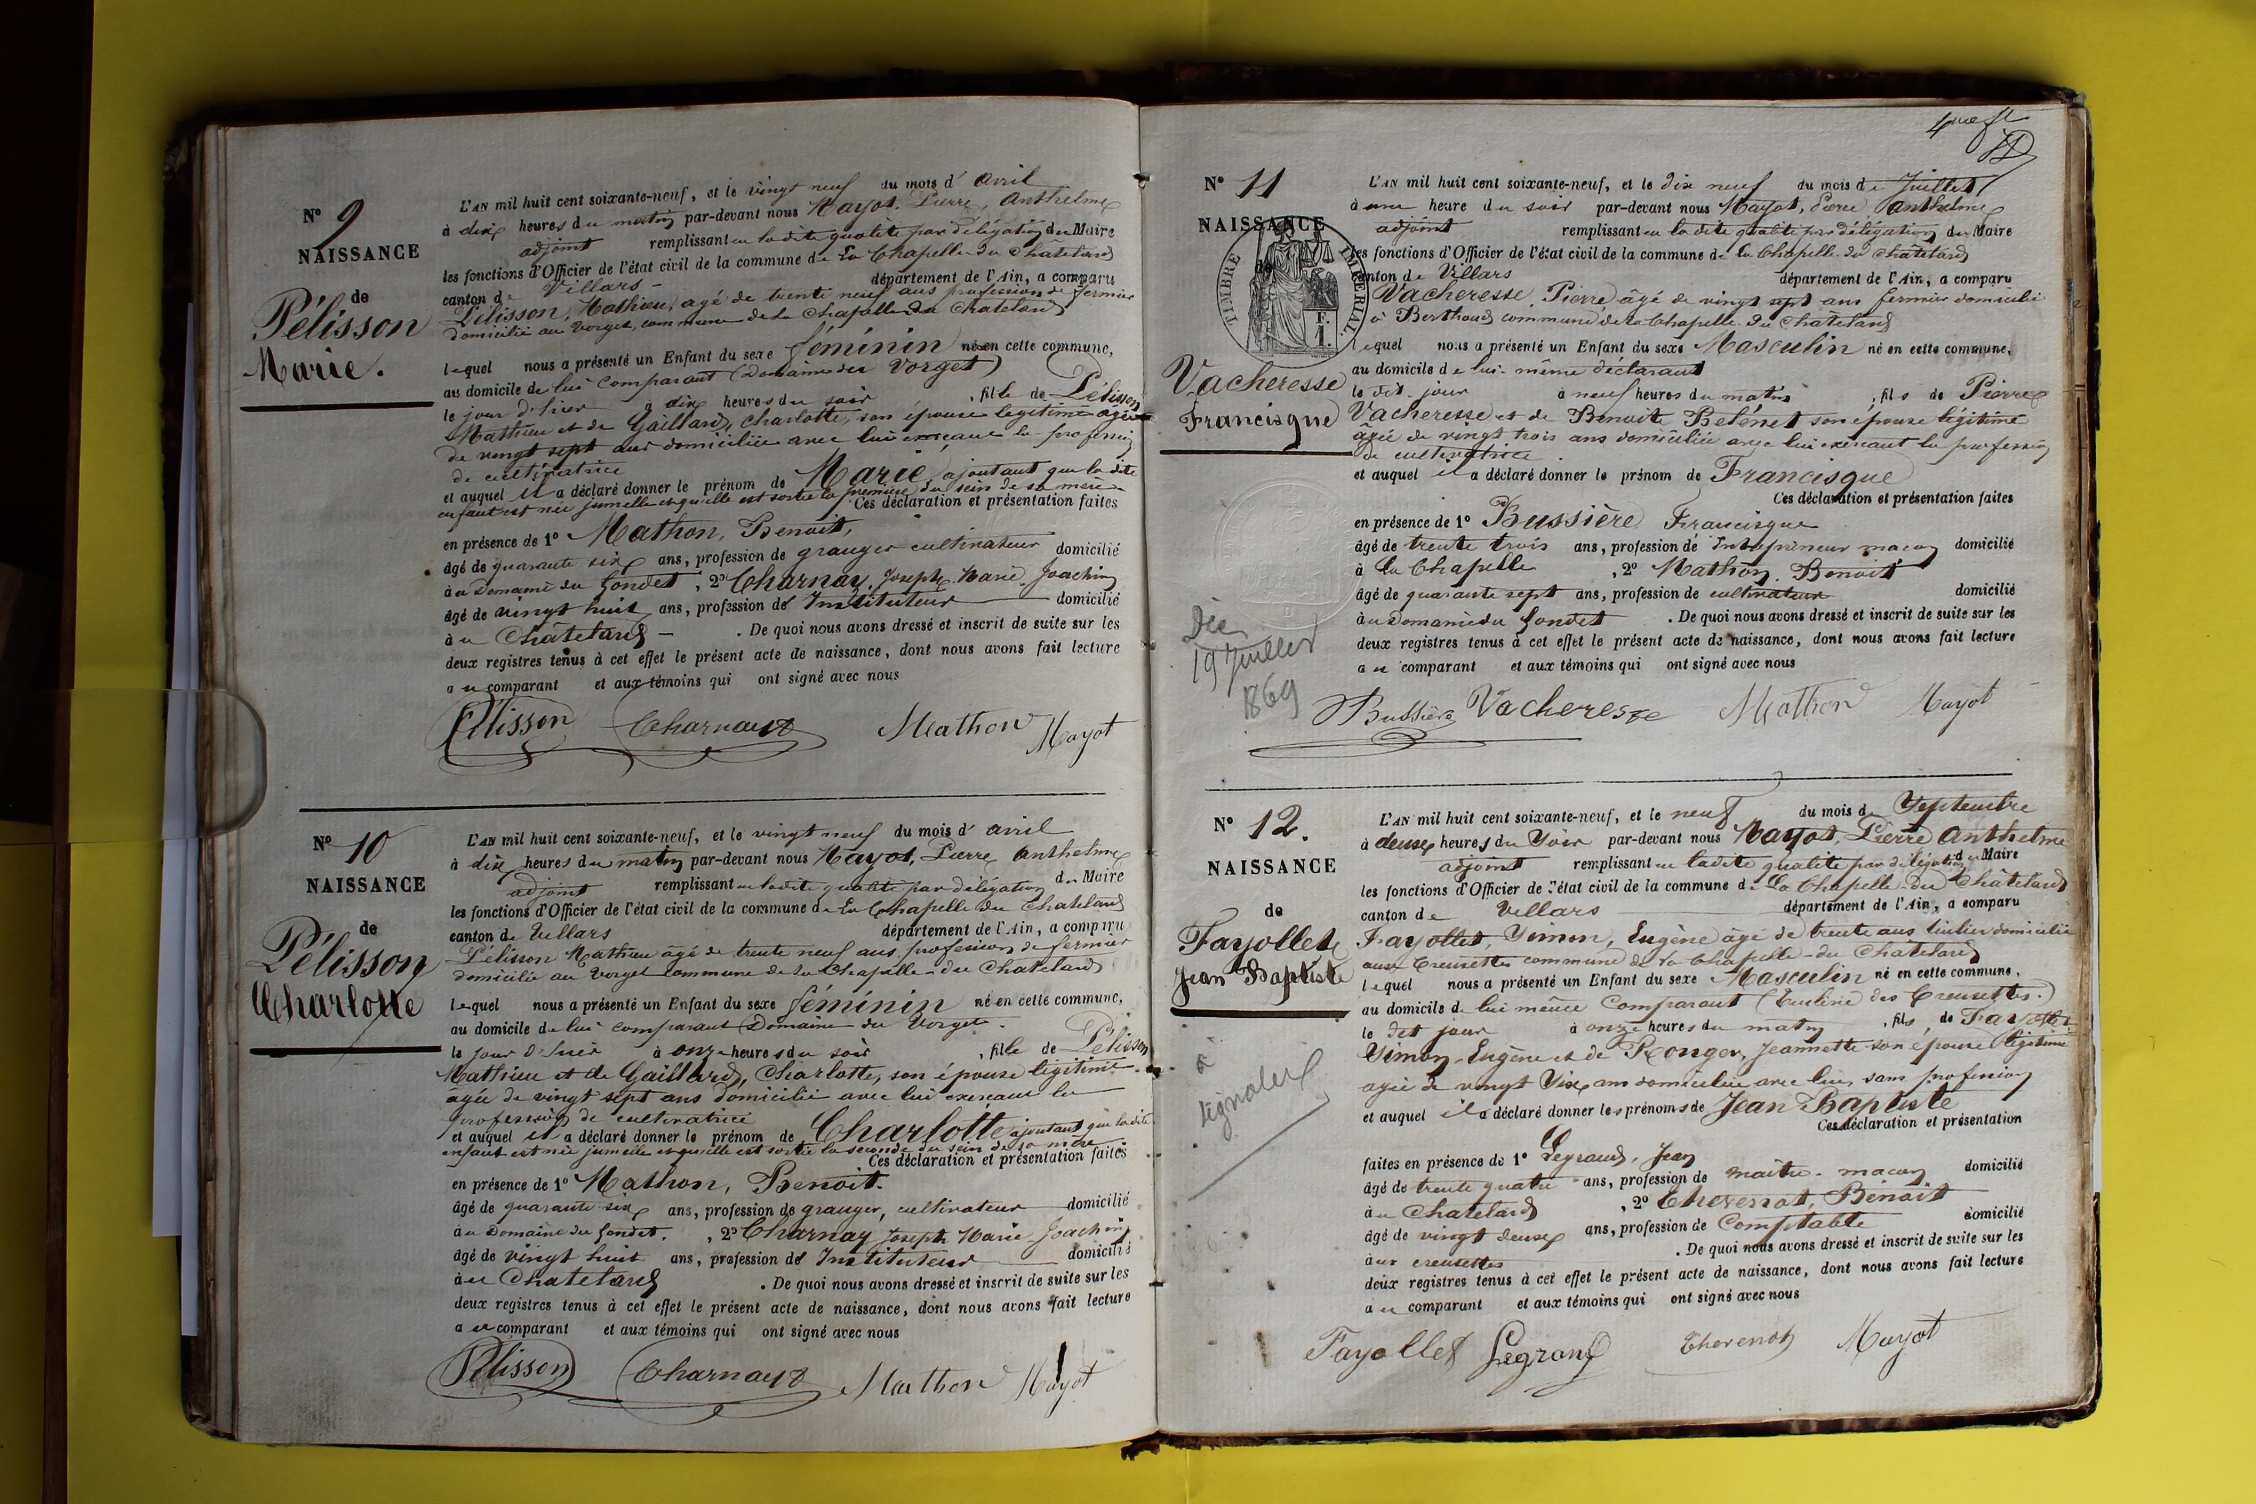 N° 9
NAISSANCE
de
Pélisson
Marie.
L'AN mil huit cent soixante-neuf, et le vingt neuf du mois d' avril
à dix heures du matin par-devant nous Mayot, Pierre, Anthelme
adjoint remplissant en la dite qualité par délégation du Maire
les fonctions d'Officier de l'état civil de la commune de La Chapelle du Châtelard
canton de Villars - département de l'Ain, a comparu
Pélisson, Mathieu, agé de trente neuf ans profession de fermier
domicilié au Vorget, commune de la Chapelle du Chatelard
lequel nous a présenté un Enfant du sexe féminin né en cette commune,
au domicile de lui comparant (Domaine du Vorget)
le jour d'hier à dix heures du soir , fille de Pélisson
Mathieu et de Gaillard, Charlotte, son épouse légitime agée
de vingt sept ans domiciliée avec lui exerçant la profession
de cultivatrice
et auquel il a déclaré donner le prénom de Marie, ajoutant que la dite
enfant est née jumelle et qu'elle est sortie la première du sein de sa mère
Ces déclaration et présentation faites
en présence de 1° Mathon, Benoit,
âgé de quarante six ans, profession de granger cultivateur domicilié
à u Domaine du Gondet , 2° Charnay, Joseph, Marie, Joachim
âgé de vingt huit ans, profession d' Instituteur domicilié
à u Châtelard - . De quoi nous avons dressé et inscrit de suite sur les
deux registres tenus à cet effet le présent acte de naissance, dont nous avons fait lecture
a u comparant et aux témoins qui ont signé avec nous
Pélisson Charnay Mathon Mayot
N° 10
NAISSANCE
de
Pélisson
Charlotte
L'AN mil huit cent soixante-neuf, et le vingt neuf du mois d' avril
à dix heures du matin par-devant nous Mayot, Pierre Anthelme
adjoint remplissant en la dite qualité par délégation du Maire
les fonctions d'Officier de l'état civil de la commune de La Chapelle du Chatelard
canton de Villars département de l'Ain, a comparu
Pélisson Mathieu âgé de trente neuf ans profession de fermier
domicilié au Vorget commune de la Chapelle-du Chatelard
lequel nous a présenté un Enfant du sexe féminin né en cette commune,
au domicile de lui comparant (Domaine du Vorget.
le jour d'hier à onze heures du soir , fille de Pélisson
Mathieu et de Gaillard, Charlotte, son épouse légitime
agée de vingt sept ans domiciliée avec lui exerçant la
profession de cultivatrice
et auquel il a déclaré donner le prénom de Charlotte ajoutant que la dite
enfant est née jumelle et qu'elle est sortie la seconde du sein de sa mère
Ces déclaration et présentation faites
en présence de 1° Mathon, Benoit.
âgé de quarante six ans, profession de granger, cultivateur domicilié
à u Domaine du Gondet. , 2° Charnay Joseph Marie Joachim
âgé de vingt huit ans, profession d' Instituteur domicilié
à u Chatelard . De quoi nous avons dressé et inscrit de suite sur les
deux registres tenus à cet effet le présent acte de naissance, dont nous avons fait lecture
a u comparant et aux témoins qui ont signé avec nous
Pélisson Charnay Mathon Mayot
4me ft
N° 11
NAISSANCE
de
TIMBRE IMPERIAL.
F.
1.
Vacheresse
Francisque
Déc
19 Juillet
1869
L'AN mil huit cent soixante-neuf, et le dix neuf du mois de Juillet
à une heure du soir par-devant nous Mayot, Pierre Anthelme
adjoint remplissant en la dite qualité par délégation du Maire
les fonctions d'Officier de l'état civil de la commune de la Chapelle du Châtelard
canton de Villars département de l'Ain, a comparu
Vacheresse, Pierre âgé de vingt sept ans fermier domicilié
à Berthoud commune de la Chapelle du Châtelard
lequel nous a présenté un Enfant du sexe Masculin né en cette commune,
au domicile de lui-même déclarant
le dit jour à neuf heures du matin , fils de Pierre
Vacheresse et de Benoite Belénet son épouse légitime
âgée de vingt trois ans domiciliée avec lui exerçant la profession
de cultivatrice
et auquel il a déclaré donner le prénom de Francisque
Ces déclaration et présentation faites
en présence de 1° Bussière Francisque
âgé de trente trois ans, profession de Intrepreneur maçon domicilié
à La Chapelle , 2° Mathon, Benoit
âgé de quarante sept ans, profession de cultivateur domicilié
à u Domaine du Gondet . De quoi nous avons dressé et inscrit de suite sur les
deux registres tenus à cet effet le présent acte de naissance, dont nous avons fait lecture
a u comparant et aux témoins qui ont signé avec nous
Bussière Vacheresse Mathon Mayot
N° 12.
NAISSANCE
de
Fayollet
Jean Baptiste
à
signaler
L'AN mil huit cent soixante-neuf, et le neuf du mois de Septembre
à deux heures du Soir par-devant nous Mayot, Pierre Anthelme
adjoint remplissant en ladite qualité par délégation du Maire
les fonctions d'Officier de l'état civil de la commune de La Chapelle-du Châtelard
canton de Villars département de l'Ain, a comparu
Fayollet, Simon, Eugène âgé de trente ans tuilier domicilié
aux Creusettes commune de la Chapelle-du Châtelard
lequel nous a présenté un Enfant du sexe Masculin né en cette commune,
au domicile de lui même comparant (Tuilerie des Creusettes.)
le dit jour à onze heures du matin , fils de Fayollet
Simon-Eugène et de Ronger, Jeannette son épouse légitime
agée de vingt Six ans domiciliée avec lui, sans profession
et auquel il a déclaré donner les prénoms de Jean Baptiste
Ces déclaration et présentation
faites en présence de 1° Legrand, Jean
âgé de trente quatre ans, profession de maître-maçon domicilié
à u Chatelard , 2° Thevenot, Benoit
âgé de vingt deux ans, profession de Comptable domicilié
à ux creusettes . De quoi nous avons dressé et inscrit de suite sur les
deux registres tenus à cet effet le présent acte de naissance, dont nous avons fait lecture
a u comparant et aux témoins qui ont signé avec nous
Fayollet Legrand Thevenot Mayot